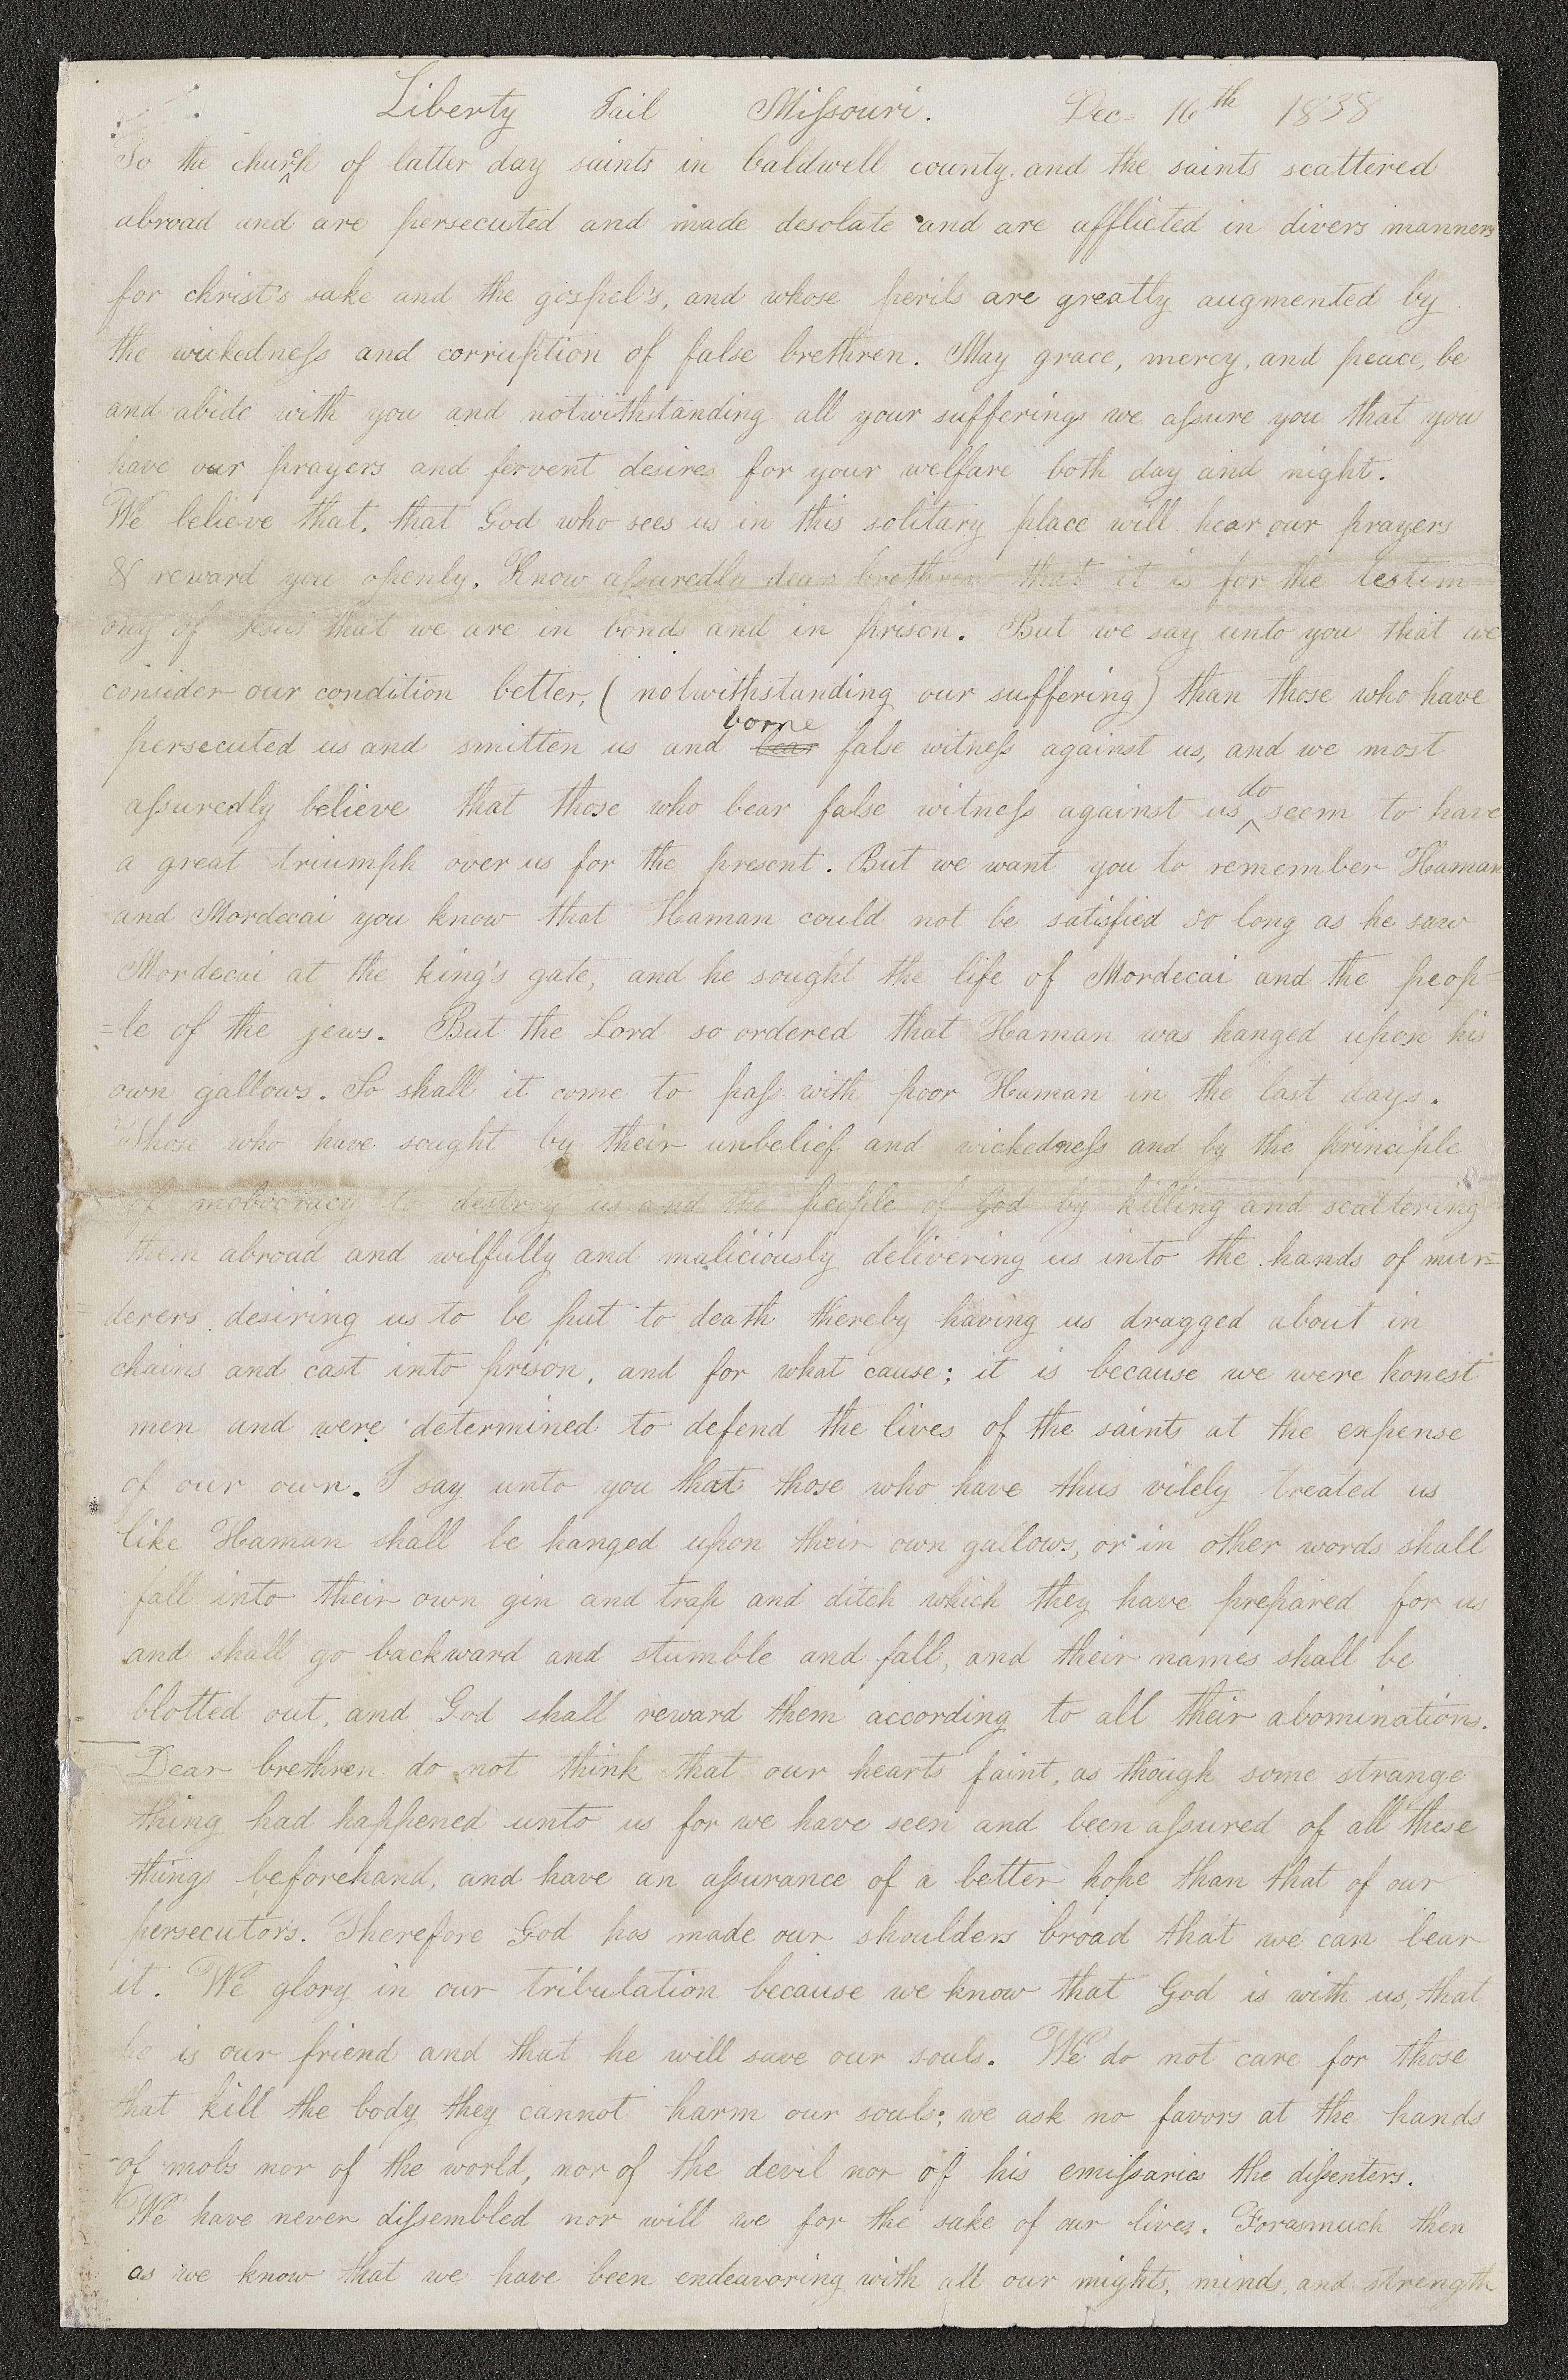 Liberty Jail Missouri. Dec. 16th 1838
To the church of latter day saints in Caldwell county. and the saints scattered
abroad and are persecuted and made desolate and are afflicted in divers manners
for christ's sake and the gospel's, and whose perils are greatly augmented by
the wickedness and corruption of false brethren. May grace, mercy, and peace, be
and abide with you and notwithstanding all your sufferings we assure you that you
have our prayers and fervent desires for your welfare both day and night.
We believe that. that God who sees us in this solitary place will hear our prayers
& reward you openly. Know assuredly dear brethren that it is for the testim
ony of Jesus that we are in bonds and in prison. But we say unto you that we
consider our condition better, (notwithstanding our suffering) than those who have
persecuted us and smitten us and bear borne false witness against us, and we most
assuredly believe that those who bear false witness against us do seem to have
a great triumph over us for the present. But we want you to remember Haman
and Mordecai you know that Haman could not be satisfied so long as he saw
Mordecai at the king's gate, and he sought the life of Mordecai and the peop=
=le of the jews. But the Lord so ordered that Haman was hanged upon his
own gallows. So shall it come to pass with poor Haman in the last days.
Those who have sought by their unbelief and wickedness and by the principle
of mobocracy to destroy us and the people of God by killing and scattering
them abroad and wilfully and maliciously delivering us into the hands of mur=
derers desiring us to be put to death thereby having us dragged about in
chains and cast into prison, and for what cause; it is because we were honest
men and were determined to defend the lives of the saints at the expense
of our own. I say unto you that those who have thus vilely treated us
like Haman shall be hanged upon their own gallows, or in other words shall
fall into their own gin and trap and ditch which they have prepared for us
and shall go backward and stumble and fall, and their names shall be
blotted out, and God shall reward them according to all their abominations.
Dear brethren do not think that our hearts faint, as though some strange
thing had happened unto us for we have seen and been assured of all these
things beforehand, and have an assurance of a better hope than that of our
persecutors. Therefore God has made our shoulders broad that we can bear
it. We glory in our tribulation because we know that God is with us, that
he is our friend and that he will save our souls. We do not care for those
that kill the body they cannot harm our souls; we ask no favors at the hands
of mobs nor of the world, nor of the devil nor of his emissaries the dissenters.
We have never dissembled nor will we for the sake of our lives. Forasmuch then
as we know that we have been endeavoring with all our mights, minds, and strength